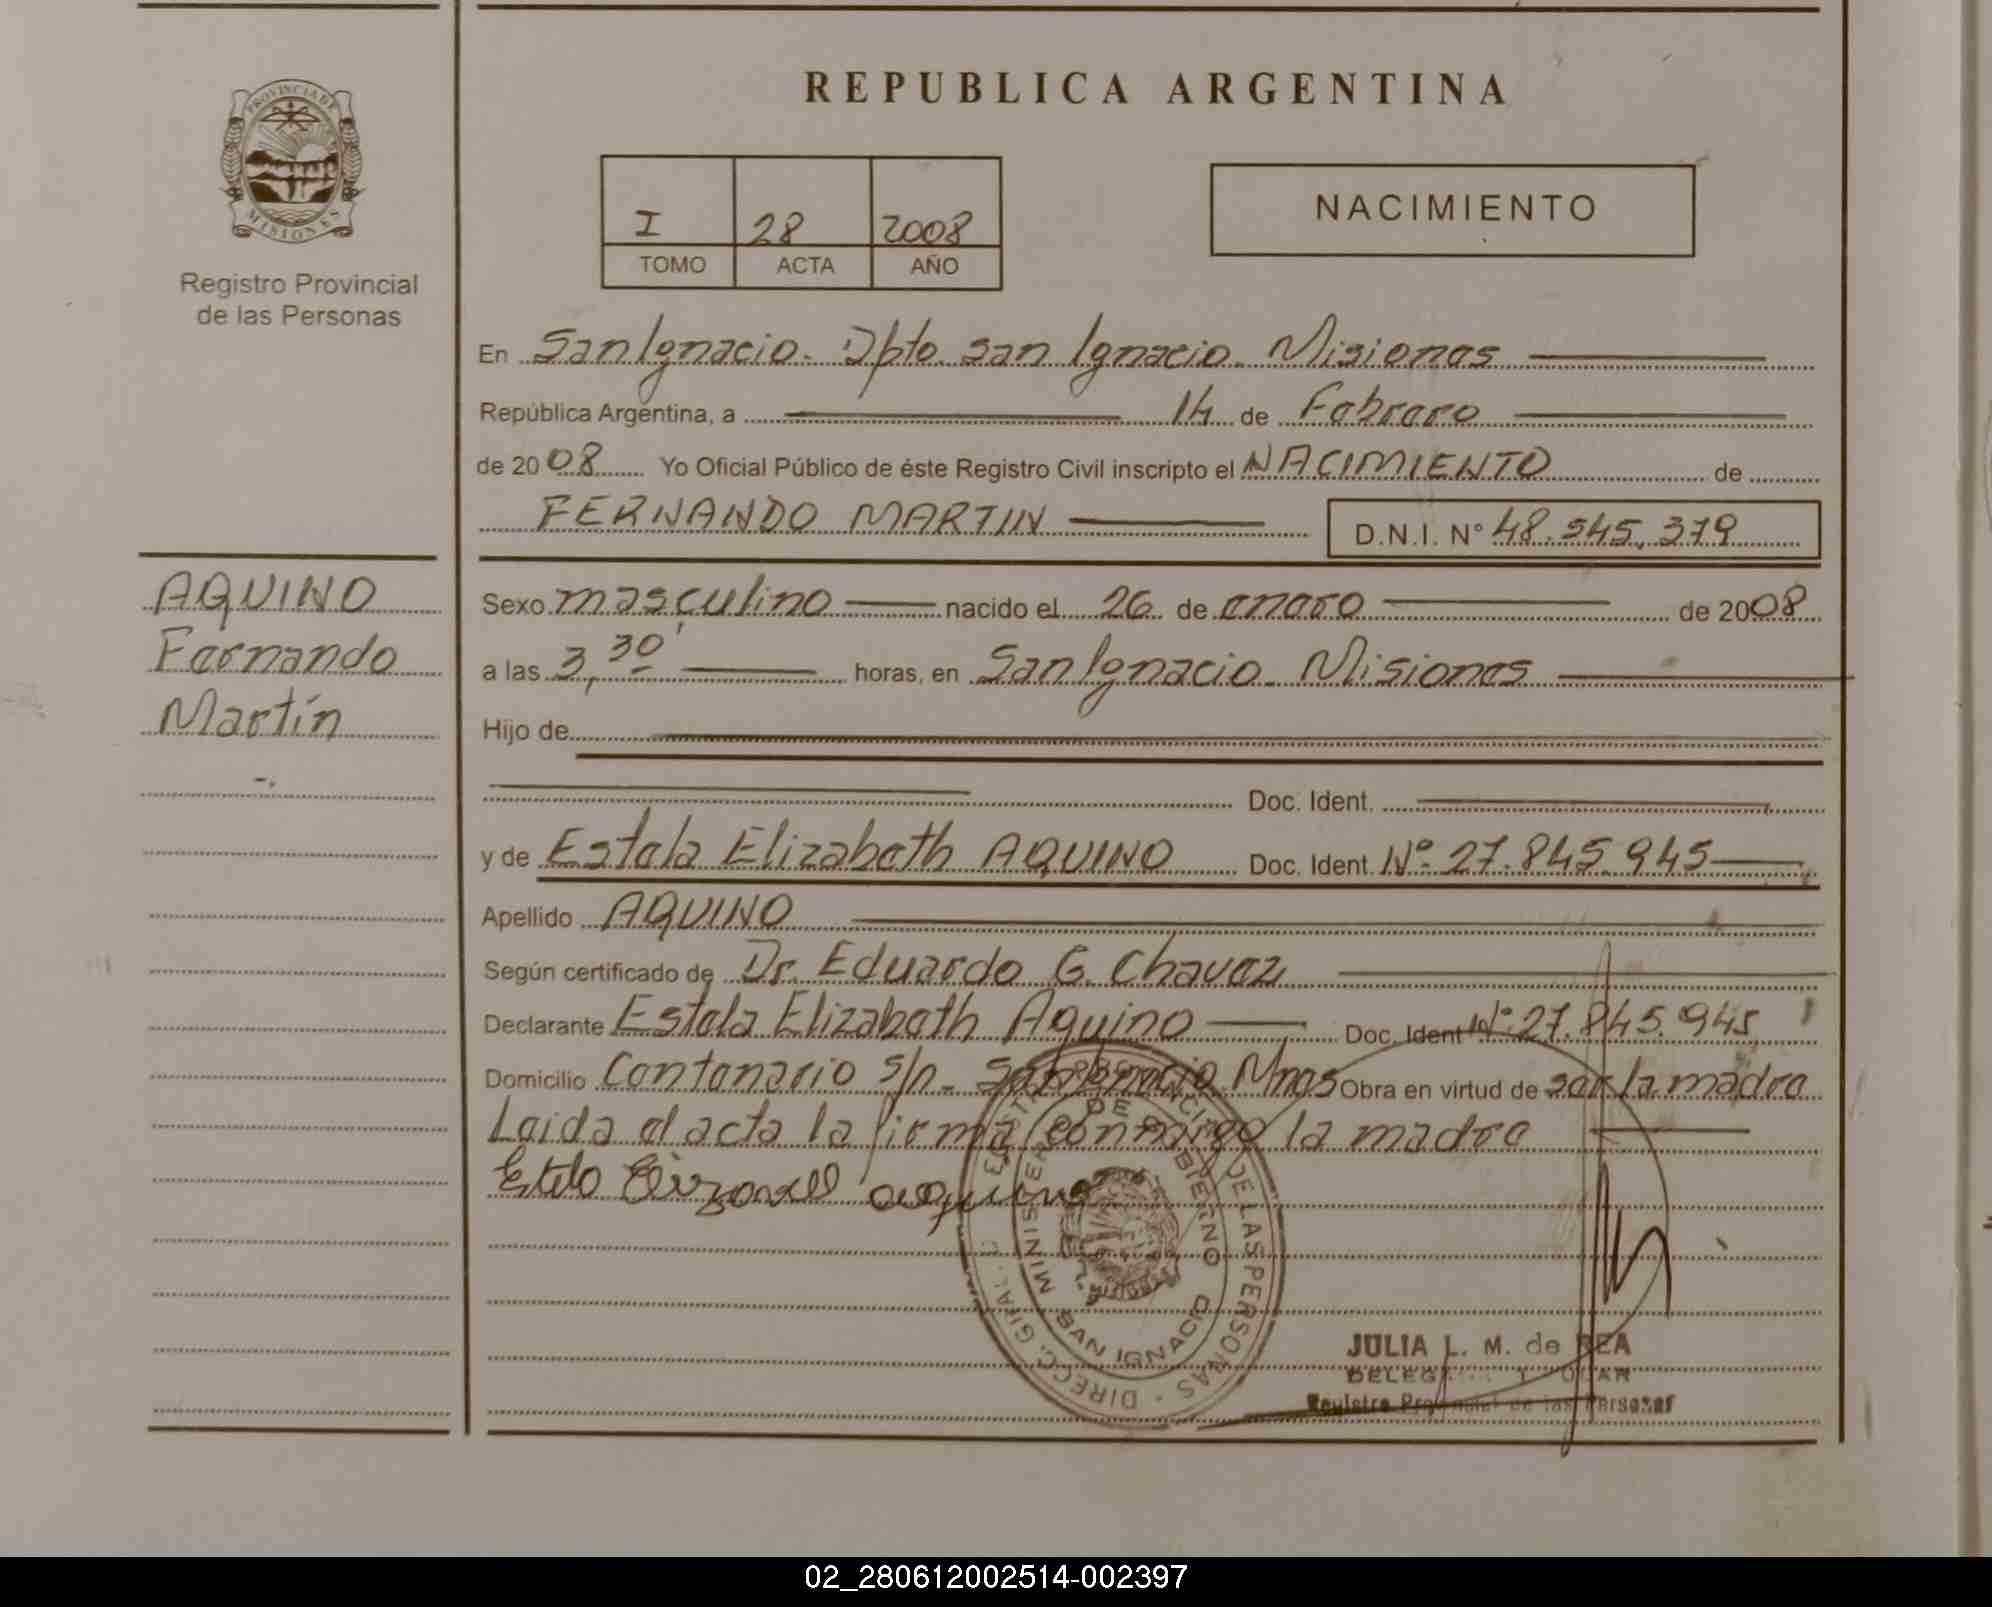 REPUBLICA ARGENTINA
PROVINCIA DE
MISIONES
Registro Provincial
de las Personas
I 28 2008
TOMO ACTA AÑO
NACIMIENTO
En San Ignacio. Dpto. San Ignacio. Misiones
República Argentina, a 14 de Febrero
de 2008 Yo Oficial Público de éste Registro Civil inscripto el NACIMIENTO de
FERNANDO MARTIN D.N.I. N° 48.545.379
AQUINO
Fernando
Martín
Sexo masculino nacido el 26 de enero de 2008
a las 3,30' horas, en San Ignacio. Misiones
Hijo de
Doc. Ident.
y de Estela Elizabeth AQUINO Doc. Ident. N° 27.845.945
Apellido AQUINO
Según certificado de Dr. Eduardo G. Chavez
Declarante Estela Elizabeth Aquino Doc. Ident N° 27.845.945
Domicilio Centenario s/n. San Ignacio Mnes Obra en virtud de ser la madre
Leida el acta la firma conmigo la madre
aquino
MINISTERIO DE GOBIERNO
SAN IGNACIO
DE LAS PERSONAS
JULIA L. M. de REA
Registro Provincial de las Personas
02_280612002514-002397